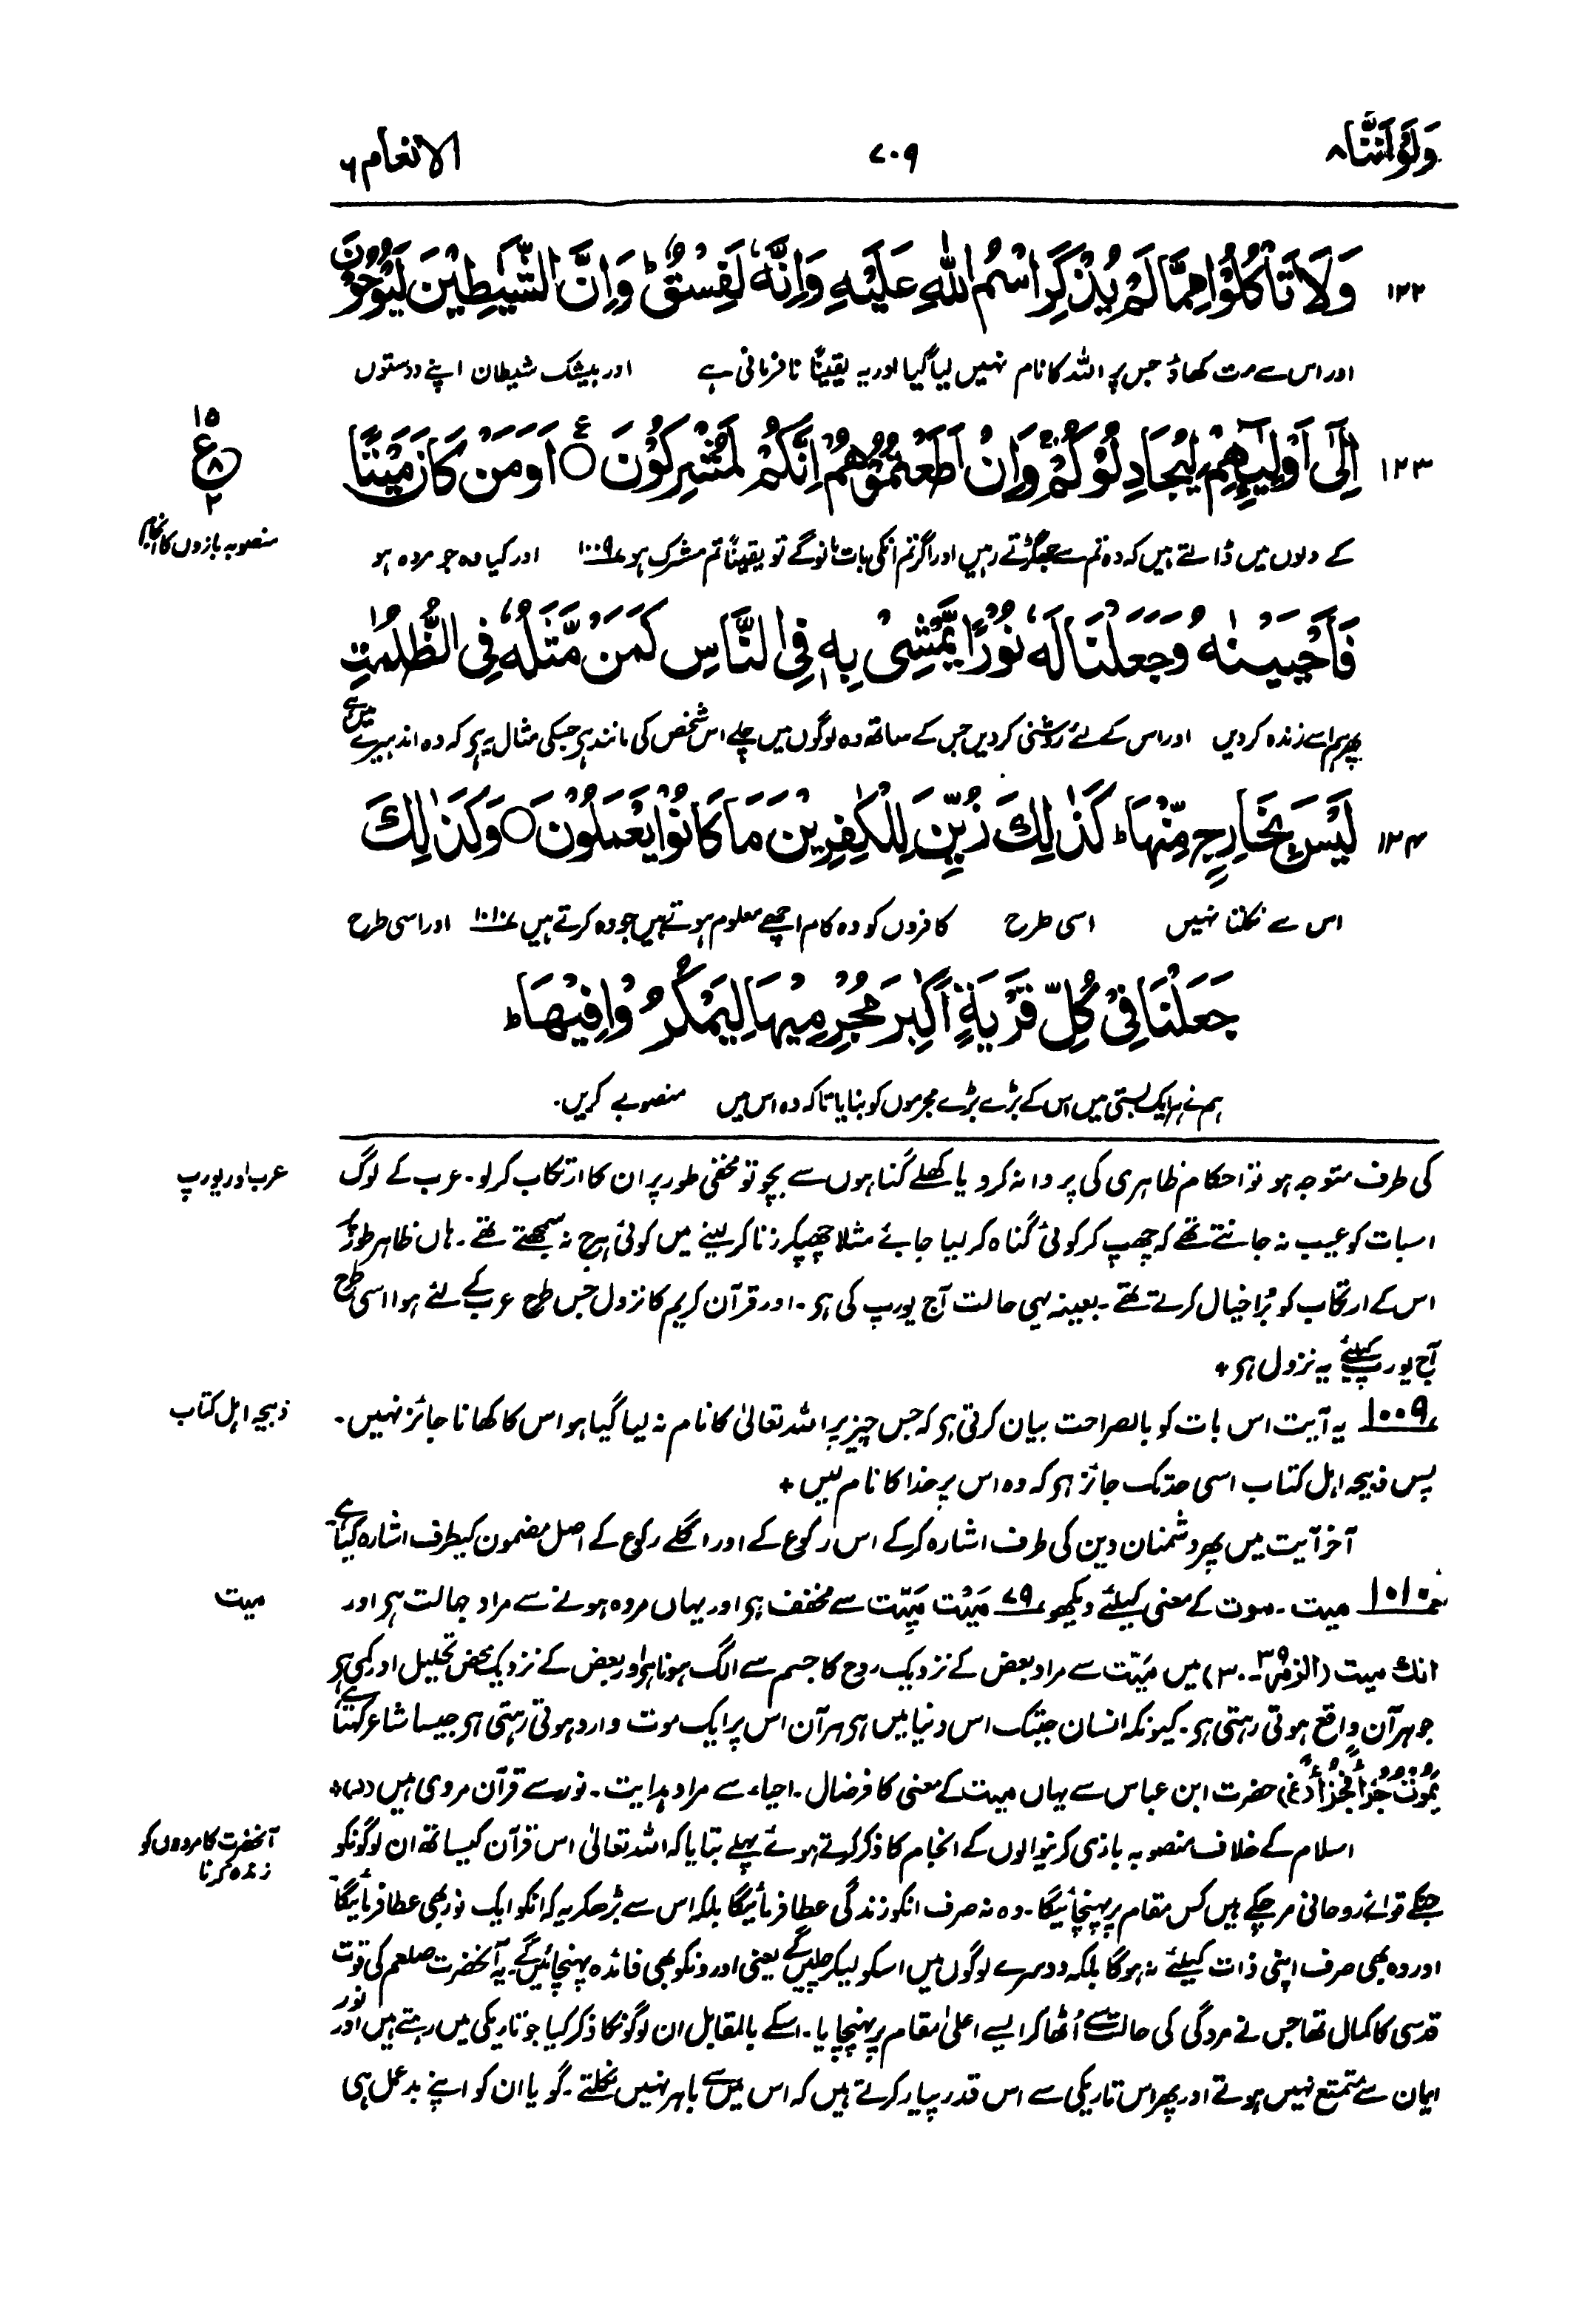 وَلَوْ اَنَّنَا ٨
٧٠٩
الانعام ٦
١٢٢ وَلَا تَاْكُلُوْا مِمَّا لَمْ يُذْكَرِ اسْمُ اللّٰهِ عَلَيْهِ وَاِنَّهٗ لَفِسْقٌ ؕ وَاِنَّ الشَّيٰطِيْنَ لَيُوْحُوْنَ
اور اس سے مت کھاؤ جس پر اللہ کا نام نہیں لیا گیا اور یہ یقیناً نافرمانی ہے اور بیشک شیطان اپنے دوستوں
١٢٣ اِلٰٓى اَوْلِيٰٓـِٕهِمْ لِيُجَادِلُوْكُمْ ۚ وَاِنْ اَطَعْتُمُوْهُمْ اِنَّكُمْ لَمُشْرِكُوْنَ ○ اَوَمَنْ كَانَ مَيْتًا
١٥
ع
٨
٢
منصوبہ بازوں کا انجام
کے دلوں میں ڈالتے ہیں کہ وہ تم سے جھگڑتے رہیں اور اگر تم انکی بات مانو گے تو یقیناً تم مشرک ہو ١٠٠٩ اور کیا وہ جو مردہ ہو
فَاَحْيَيْنٰهُ وَجَعَلْنَا لَهٗ نُوْرًا يَّمْشِيْ بِهٖ فِى النَّاسِ كَمَنْ مَّثَلُهٗ فِى الظُّلُمٰتِ
پھر ہم اسے زندہ کر دیں اور اس کے لئے روشنی کر دیں جس کے ساتھ وہ لوگوں میں چلے اس شخص کی مانند ہے جسکی مثال یہ ہے کہ وہ اندہیرے میں ہے
١٢٤ لَيْسَ بِخَارِجٍ مِّنْهَا ؕ كَذٰلِكَ زُيِّنَ لِلْكٰفِرِيْنَ مَا كَانُوْا يَعْمَلُوْنَ ○ وَكَذٰلِكَ
اس سے نکلتا نہیں اسی طرح کافروں کو وہ کام اچھے معلوم ہوتے ہیں جو وہ کرتے ہیں ١٠١٠ اور اسی طرح
جَعَلْنَا فِيْ كُلِّ قَرْيَةٍ اَكٰبِرَ مُجْرِمِيْهَا لِيَمْكُرُوْا فِيْهَا ؕ
ہم نے ہر ایک بستی میں اس کے بڑے بڑے مجرموں کو بنایا تاکہ وہ اس میں منصوبے کریں۔
کی طرف متوجہ ہو تو احکام ظاہری کی پروا نہ کرو یا کھلے گناہوں سے بچو تو مخفی طور پر ان کا ارتکاب کرلو۔ عرب کے لوگ
عرب اور یورپ
اسبات کو عیب نہ جانتے تھے کہ چھپ کر کوئی گناہ کر لیا جائے مثلا چھپکر زنا کر لینے میں کوئی ہرج نہ سمجھتے تھے۔ ہاں ظاہر طور پر
اس کے ارتکاب کو بُرا خیال کرتے تھے۔ بعینہ یہی حالت آج یورپ کی ہے۔ اور قرآن کریم کا نزول جس طرح عرب کے لئے ہوا اسی طرح
آج یورپ کیلئے یہ نزول ہے +
١٠٠٩ یہ آیت اس بات کو بالصراحت بیان کرتی ہے کہ جس چیز پر اللہ تعالیٰ کا نام نہ لیا گیا ہو اس کا کھانا جائز نہیں۔
ذبیحہ اہل کتاب
پس ذبیحہ اہل کتاب اسی حد تک جائز ہے کہ وہ اس پر خدا کا نام لیں +
آخر آیت میں پھر دشمنان دین کی طرف اشارہ کرکے اس رکوع کے اور اگلے رکوع کے اصل مضمون کیطرف اشارہ کیا ہے۔
١٠١٠ میت۔ موت کے معنی کیلئے دیکھو ٧٩ مَیْت مَیِّت سے مخفف ہے اور یہاں مردہ ہونے سے مراد جہالت ہے اور
میت
انك ميت (الزمر ٣٩۔ ٣٠) میں مَیِّت سے مراد بعض کے نزدیک روح کا جسم سے الگ ہونا ہے اور بعض کے نزدیک محض تحلیل اور کمی ہے
جو ہر آن واقع ہوتی رہتی ہے۔ کیونکہ انسان جبتک اس دنیا میں ہے ہر آن اس پر ایک موت وارد ہوتی رہتی ہے جیسا شاعر کہتا ہے
يَمُوْتُ جُزْأً فَجُزْأً (غ) حضرت ابن عباس سے یہاں میت کے معنی کافر ضال۔ احیاء سے مراد ہدایت۔ نور سے قرآن مروی ہیں (ر) +
اسلام کے خلاف منصوبہ بازی کرنیوالوں کے انجام کا ذکر کرتے ہوئے پہلے بتایا کہ اللہ تعالیٰ اس قرآن کیساتھ ان لوگونکو
آنحضرت کا مردوں کو
زندہ کرنا
جنکے قوائے روحانی مر چکے ہیں کس مقام پر پہنچائیگا۔ وہ نہ صرف انکو زندگی عطا فرمائیگا بلکہ اس سے بڑھکر یہ کہ انکو ایک نور بھی عطا فرمائیگا
اور وہ بھی صرف اپنی ذات کیلئے نہ ہوگا بلکہ دوسرے لوگوں میں اسکو لیکر چلیں گے یعنی اورونکو بھی فائدہ پہنچائیں گے۔ یہ آنحضرت صلعم کی قوت
قدسی کا کمال تھا جس نے مردگی کی حالت سے اُٹھا کر ایسے اعلیٰ مقام پر پہنچایا۔ اسکے بالمقابل ان لوگونکا ذکر کیا جو تاریکی میں رہتے ہیں اور نور
ایمان سے متمتع نہیں ہوتے اور پھر اس تاریکی سے اس قدر پیار کرتے ہیں کہ اس میں سے باہر نہیں نکلتے۔ گویا ان کو اپنے بد عمل ہی